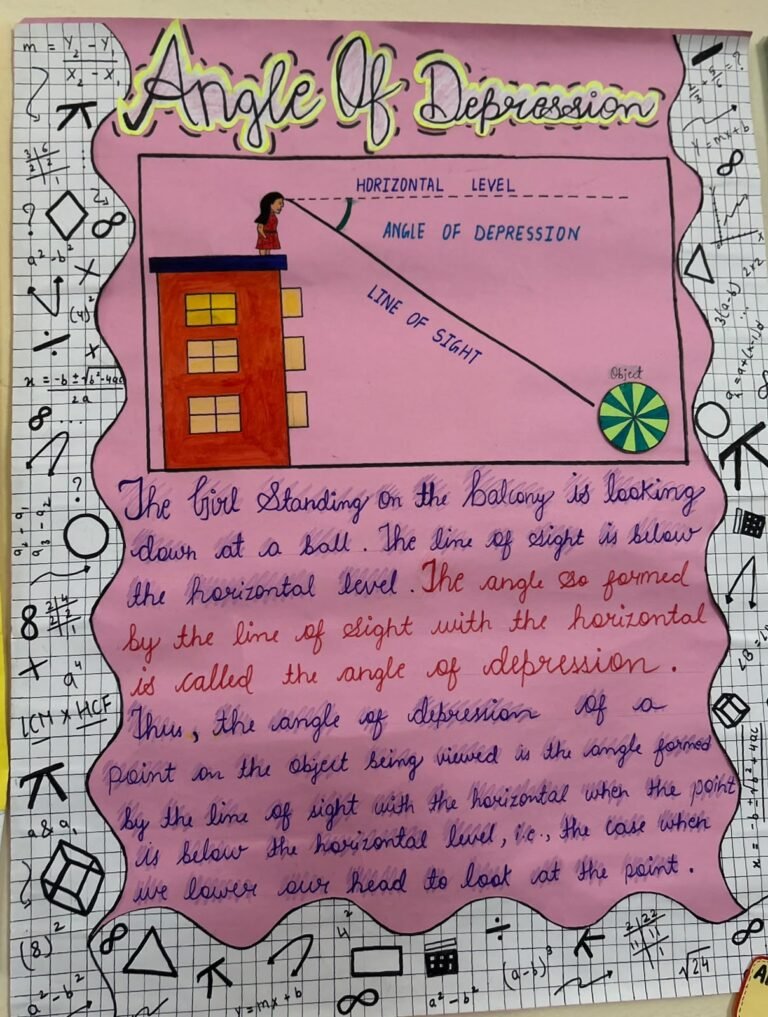 Angle Of Depression
HORIZONTAL LEVEL
ANGLE OF DEPRESSION
LINE OF SIGHT
Object
The Girl Standing on the balcony is looking
down at a ball. The line of sight is below
the horizontal level. The angle so formed
by the line of sight with the horizontal
is called the angle of depression.
Thus, the angle of depression of a
point on the object being viewed is the angle formed
by the line of sight with the horizontal when the point
is below the horizontal level, i.e., the case when
we lower our head to look at the point.
m = Y₂ - Y₁
X₂ - X₁
?
a² - b²
(4)²
÷
x = -b ± √b² - 4ac
2a
∞ ...
?
a₃ - a₂
8
a⁴
LCM x HCF
π
a & a₁
(8)²
a² - b²
y = mx + b
∞
4²
a² - b²
÷
(a-b)³
√24
∞
y = mx + b
∞
3(a-b)
2x2